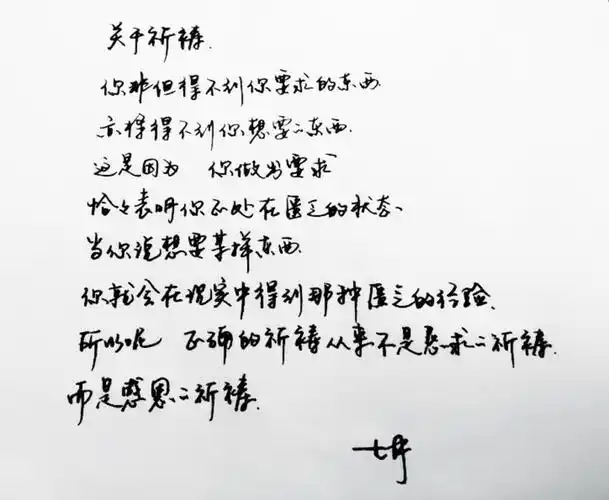 关于祈祷.
你非但得不到你要求的东西.
亦得得不到你想要的东西.
这是因为 你做出要求
恰恰表明你正处在匮乏的状态、
当你说想要某样东西.
你就会在现实中得到那种匮乏的经验.
所以呢 正确的祈祷从来不是恳求的祈祷.
而是感恩的祈祷.